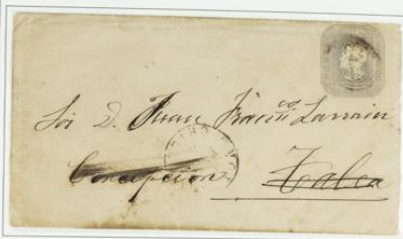 Sor D. Juan Franco Larrain
Concepcion
Talca